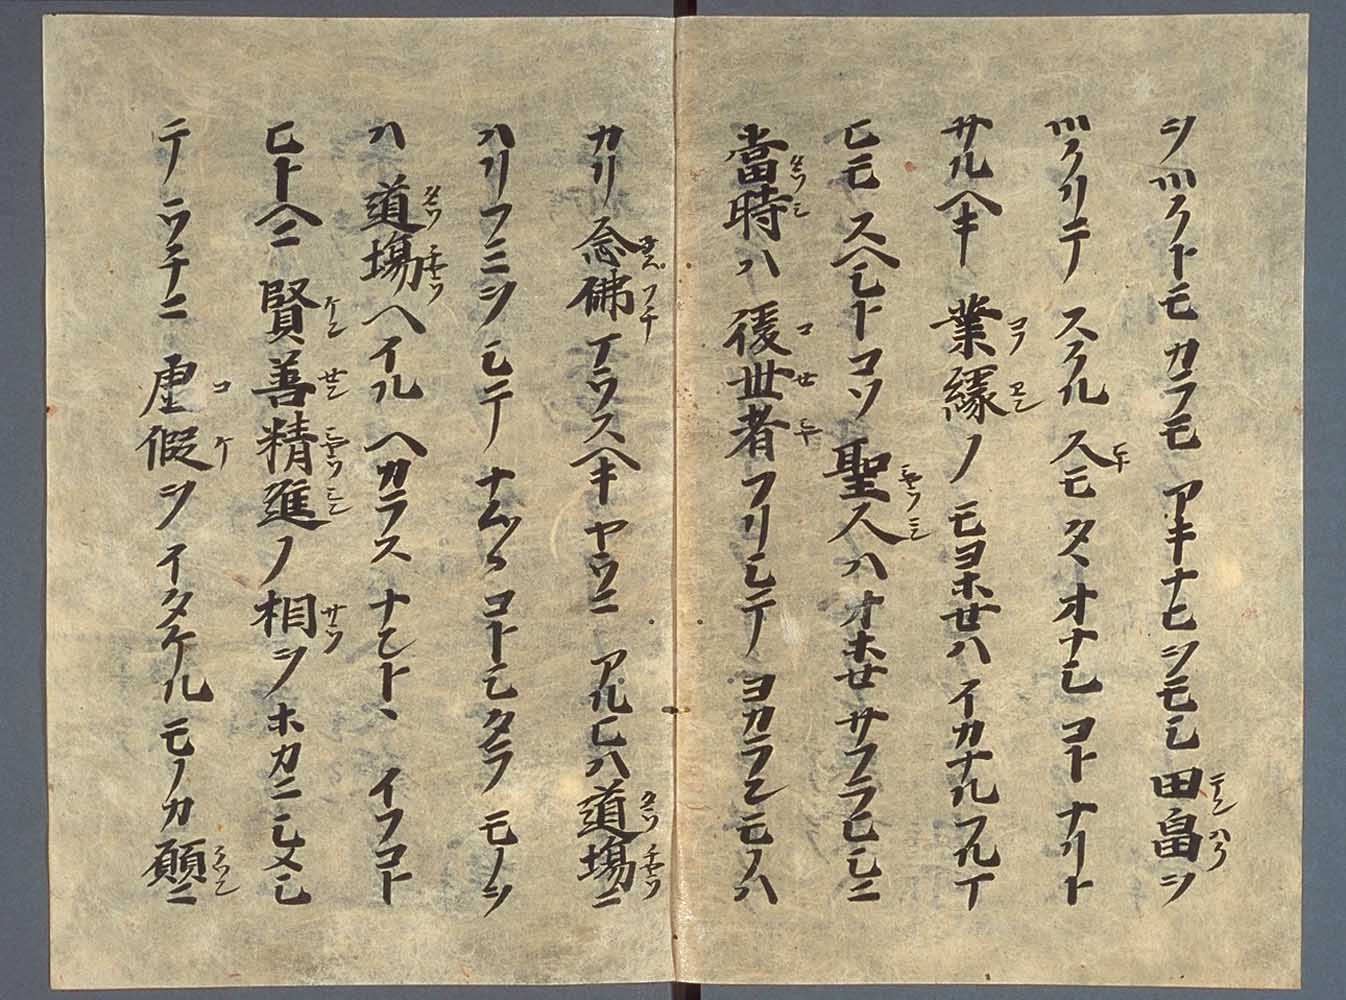 ヲツクトモカラモアキナヒヲモシ田畠ヲ
ツクリテスクル人モタヽオナシコトナリト
サルヘキ業縁ノモヨホセハイカナルフルマ
ヒモスヘシトコソ聖人ハオホセサフラヒシニ
當時ハ後世者フリシテヨカランモノハ
カリ念佛マウスヘキヤウニアルヒハ道塲ニ
ハリフミヲシテナムヽコトシタラモノヲ
ハ道塲ヘイルヘカラスナントヽイフコト
ヒトヘニ賢善精進ノ相ヲホカニシメシ
テウチニ虚假ヲイタケルモノカ願ニ